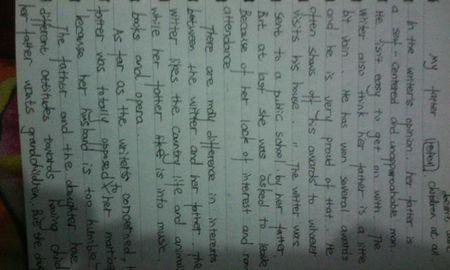 my father
children at all
In the writer's opinion, her father is
a self-centered and unapproachable man.
He isn't easy to get on with. The
writer also think her father is a little
by vain. He has won several awards
and he is very proud of that. He
often shows off his awards to whoever
visits his house. The writer was
sent to a public school by her father
But at last she was asked to leave
Because of her lack of interest and
attendance.
There are many difference in interests
between the writer and her father. The
writer likes the country life and animal
while her father is into music,
books and opera.
As far as the writer's concerned,
father was totally opposed to her
because her husband is too humble
The father and the daughter have
different attitudes towards having child
her father wants grandchildren, But the